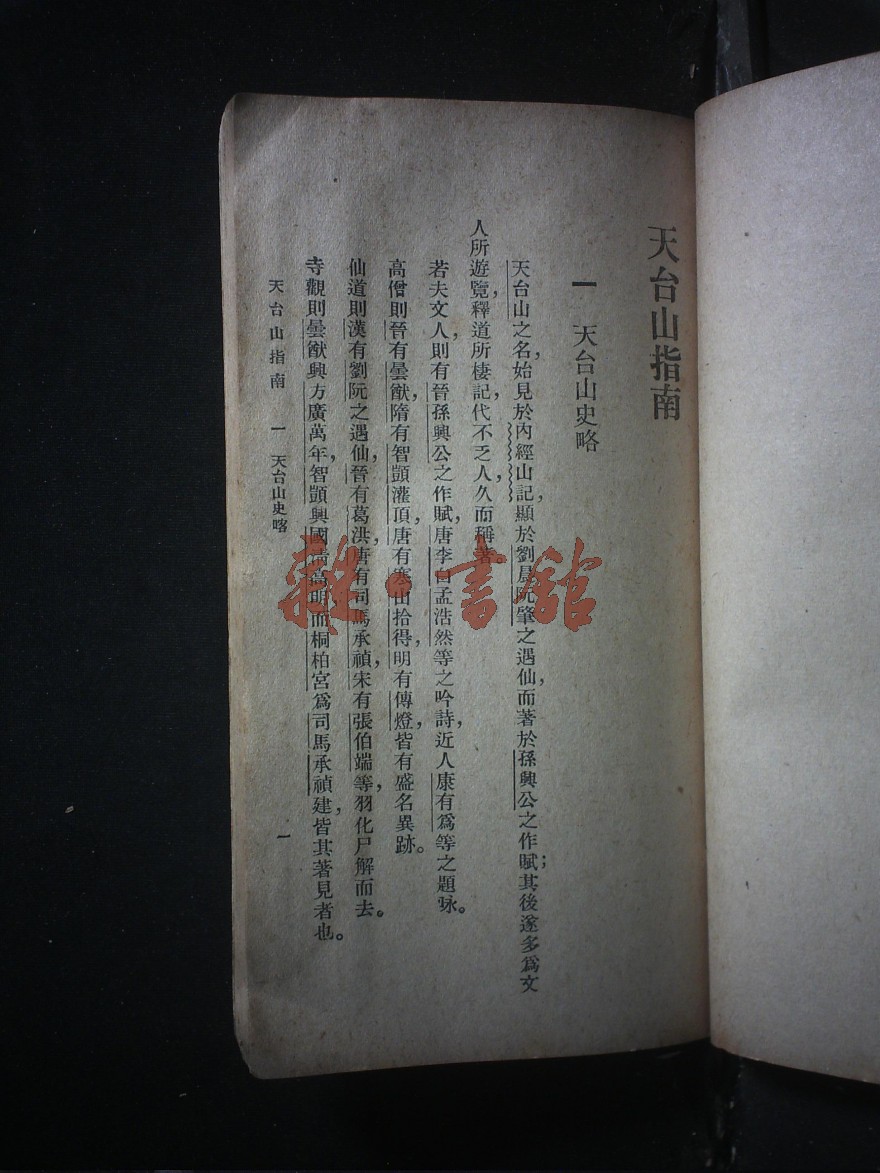 天台山指南
一 天台山史略
天台山之名，始見於內經山記，顯於劉晨阮肇之遇仙，而著於孫興公之作賦；其後遂多爲文
人所遊覽，釋道所棲記，代不乏人，久而稱著。
若夫文人，則有晉孫興公之作賦，唐李白孟浩然等之吟詩，近人康有爲等之題咏。
高僧則晉有曇猷，隋有智顗灌頂，唐有寒山拾得，明有傳燈，皆有盛名異跡。
仙道則漢有劉阮之遇仙，晉有葛洪，唐有司馬承禎，宋有張伯端等，羽化尸解而去。
寺觀則曇猷興方廣萬年，智顗興國淸高明，而桐柏宮爲司馬承禎建，皆其著見者也。
天台山指南 一 天台山史略
一
書館